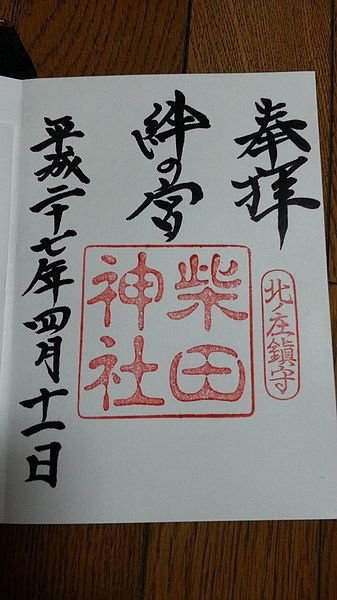 奉拝
北庄鎮守
絆の宮
柴田
神社
平成二十七年四月十一日